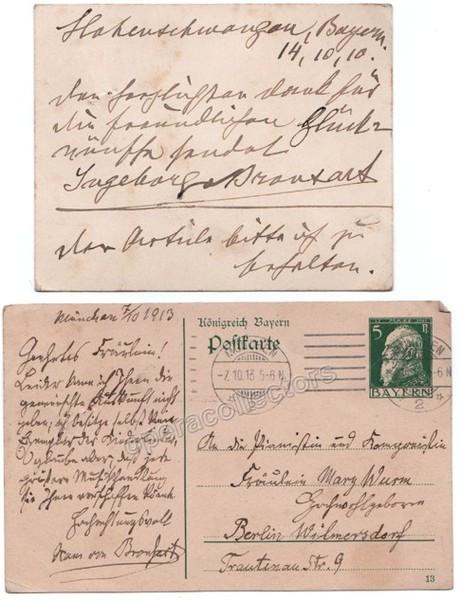 Hohenschwangau, Bayern.
14, 10, 10.
den herzlichsten Dank für
die freundlichen Glück-
wünsche sendet
Ingeborg v Bronsart
den Artikel bitte ich zu
behalten.
München 7/10 1913
Geehrtes Fräulein!
Leider kann ich Ihnen die
gewünschte Auskunft nicht
geben, ich besitze selbst kein
Exemplar der
glaube aber, daß jede
größere Musikhandlung
sie Ihnen verschaffen kann.
Hochachtungsvoll
Hans von Bronsart
Königreich Bayern
Postkarte
MÜNCHEN
-7.10.13 5-6 N
5 Pf
BAYERN
6 N
2
An die Pianistin und Komponistin
Fräulein Mary Wurm
Hochwohlgeboren
Berlin Wilmersdorf
Trautenau Str. 9
13
operacollectors